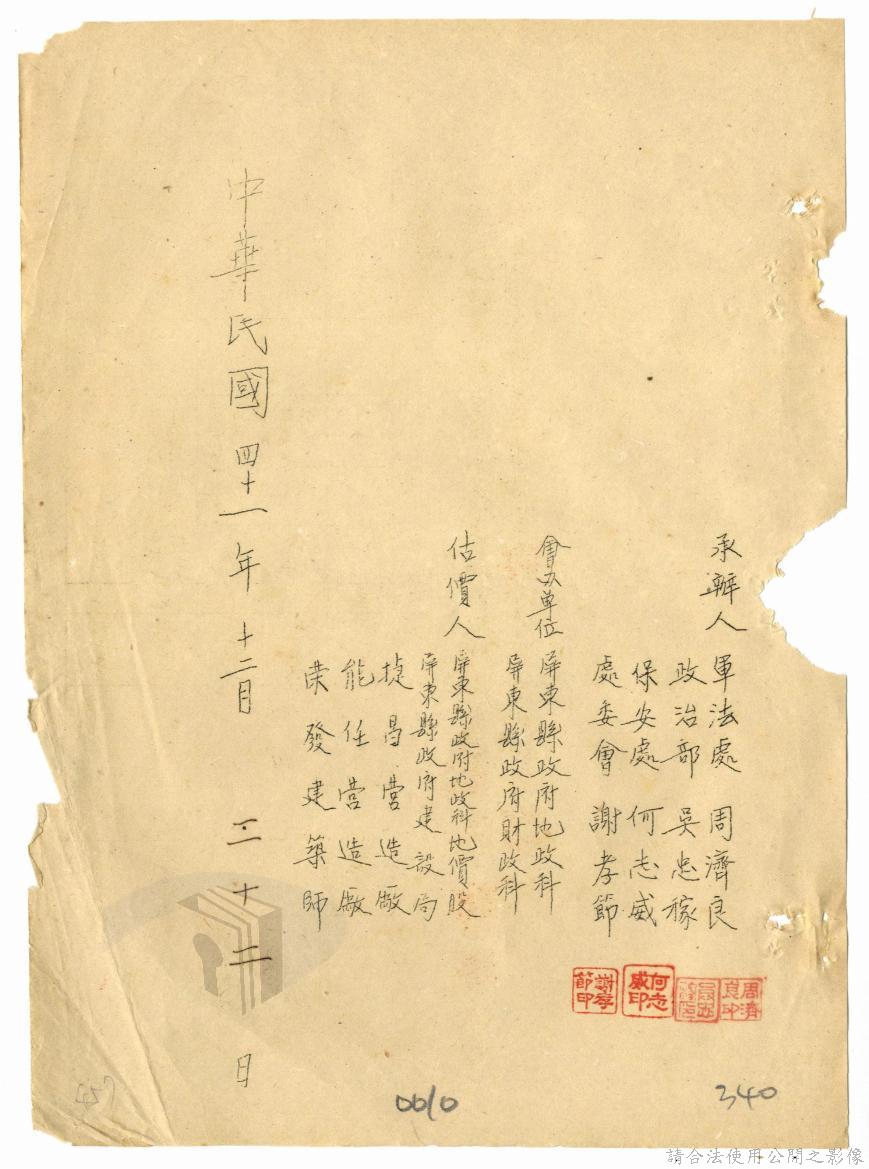 承辦人 軍法處 周濟良
政治部 吳忠稼
保安處 何志威
處委會 謝孝節
會办單位 屏東縣政府地政科
屏東縣政府財政科
估價人 屏東縣政府地政科地價股
屏東縣政府建設局
捷昌營造廠
能任營造廠
荣發建築師
中華民國四十一年十二月 三十二 日
周濟良印
何志威印
謝孝節印
340
0010
457
請合法使用公開之影像